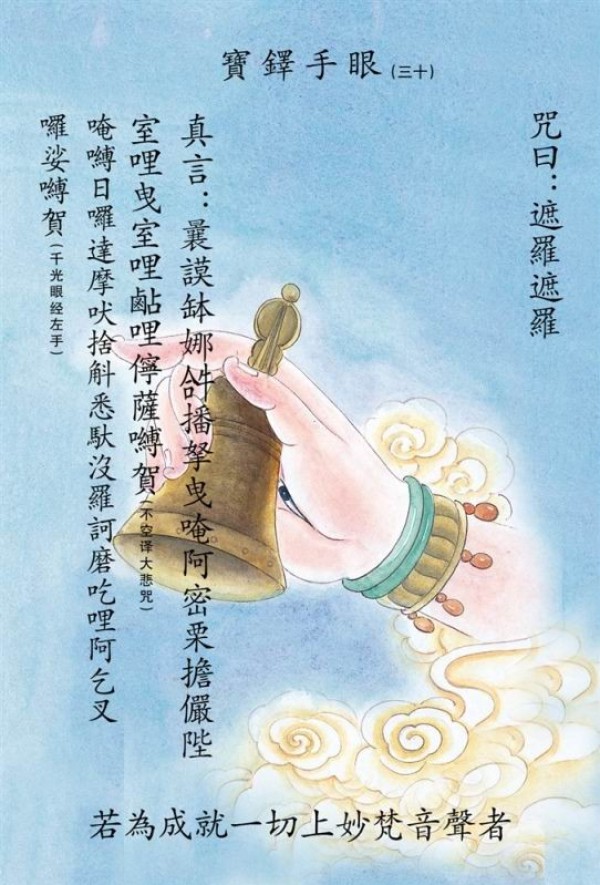 寶鐸手眼(三十)
咒曰：遮羅遮羅
真言：曩謨缽娜𤙖播拏曳唵阿密栗擔儼陛
室哩曳室哩鮎哩儜薩嚩賀(不空译大悲咒)
唵嚩日囉達摩吠捨斛悉馱沒羅訶磨吃哩阿乞叉
囉娑嚩賀(千光眼经左手)
若為成就一切上妙梵音聲者